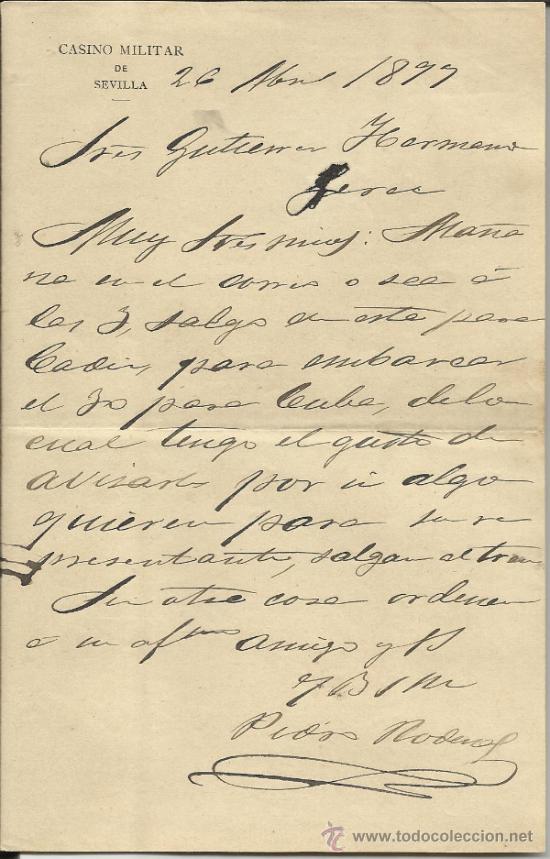 CASINO MILITAR
DE
SEVILLA
26 Abril 1897
Sres Gutierrez Hermano
Jerez
Muy Sres mios: Maña
na en el correo o sea á
las 3, salgo en este para
Cadiz, para embarcar
el 30 para Cuba, de lo
cual tengo el gusto de
avisarles por si algo
quieren para su re
presentante, salgan al tren
Sin otra cosa ordenen
á su afmo amigo y SS
q B S M
Pedro Rodriguez
www.todocoleccion.net